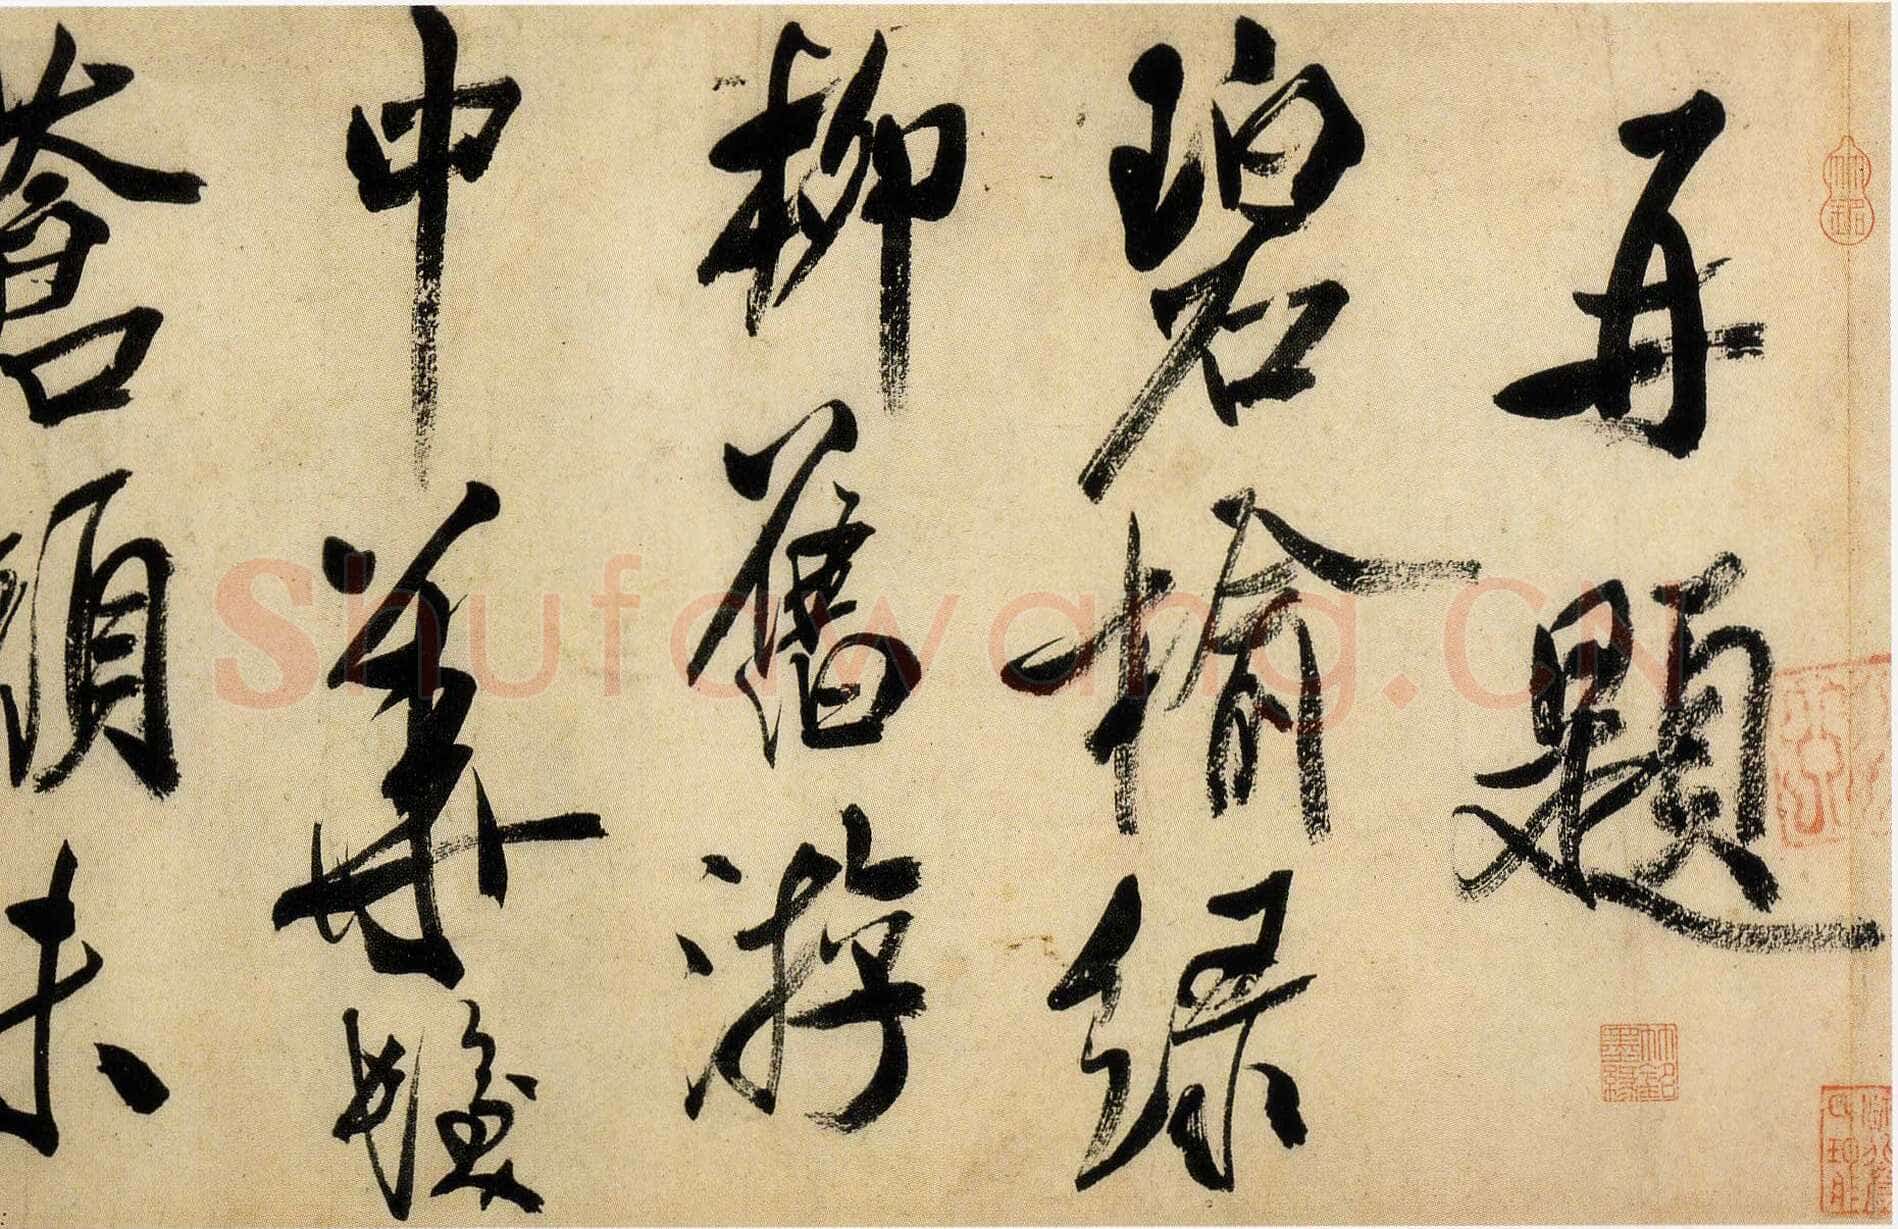 再題
碧榆綠
柳舊游
中華髮
蒼顏未
Shufawang.CN